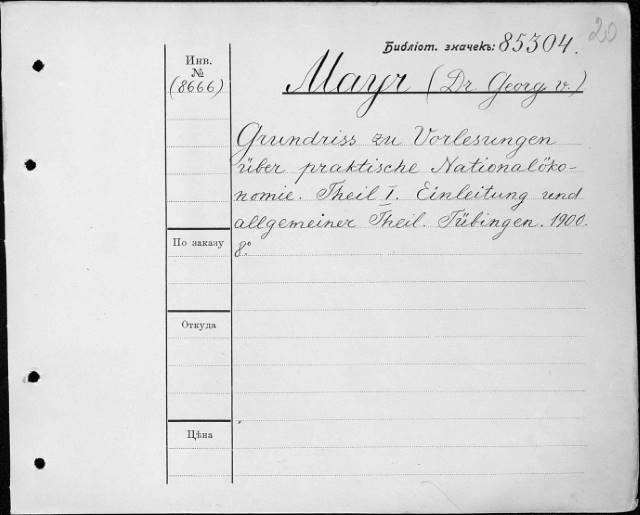 20
Библіот. значекъ: 85304.
Инв.
№
(8666)
Mayr (Dr Georg v.)
Grundriss zu Vorlesungen
über praktische Nationalöko-
nomie. Theil I. Einleitung und
allgemeiner Theil. Tübingen. 1900.
По заказу
8°
Откуда
Цѣна